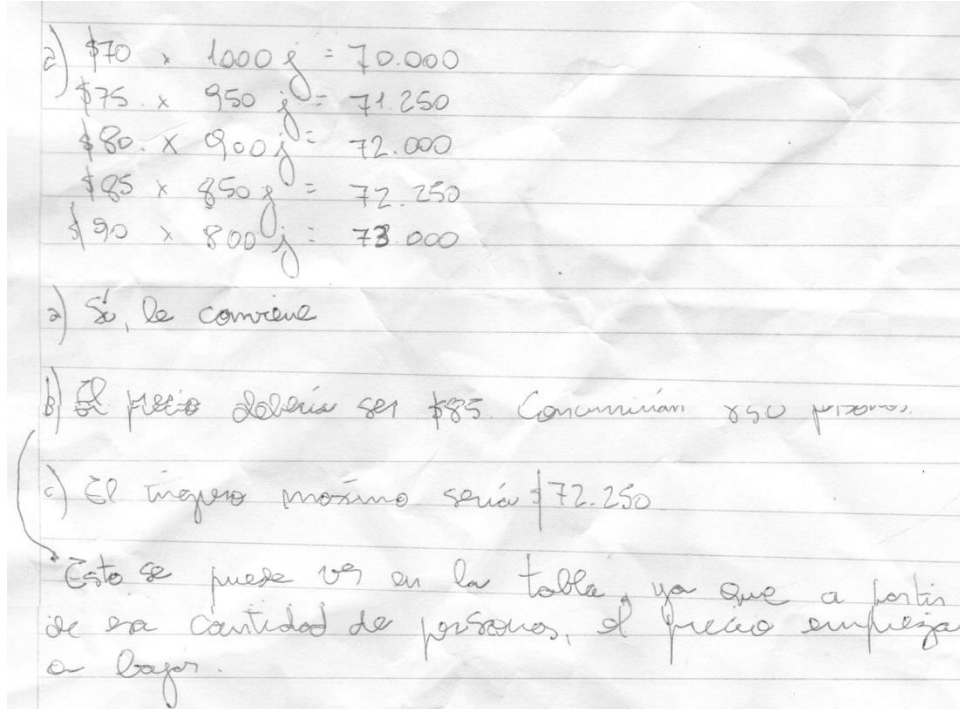 a) $70 x 1000 j = 70.000
$75 x 950 j = 71.250
$80. x 900 j = 72.000
$85 x 850 j = 72.250
$90 x 800 j = 73.000
a) Sí, le conviene
b) El precio debería ser $85. Concurrirían 850 personas.
c) El ingreso máximo sería $72.250
Esto se puede ver en la tabla, ya que a partir
de esa cantidad de personas, el precio empieza
a bajar.